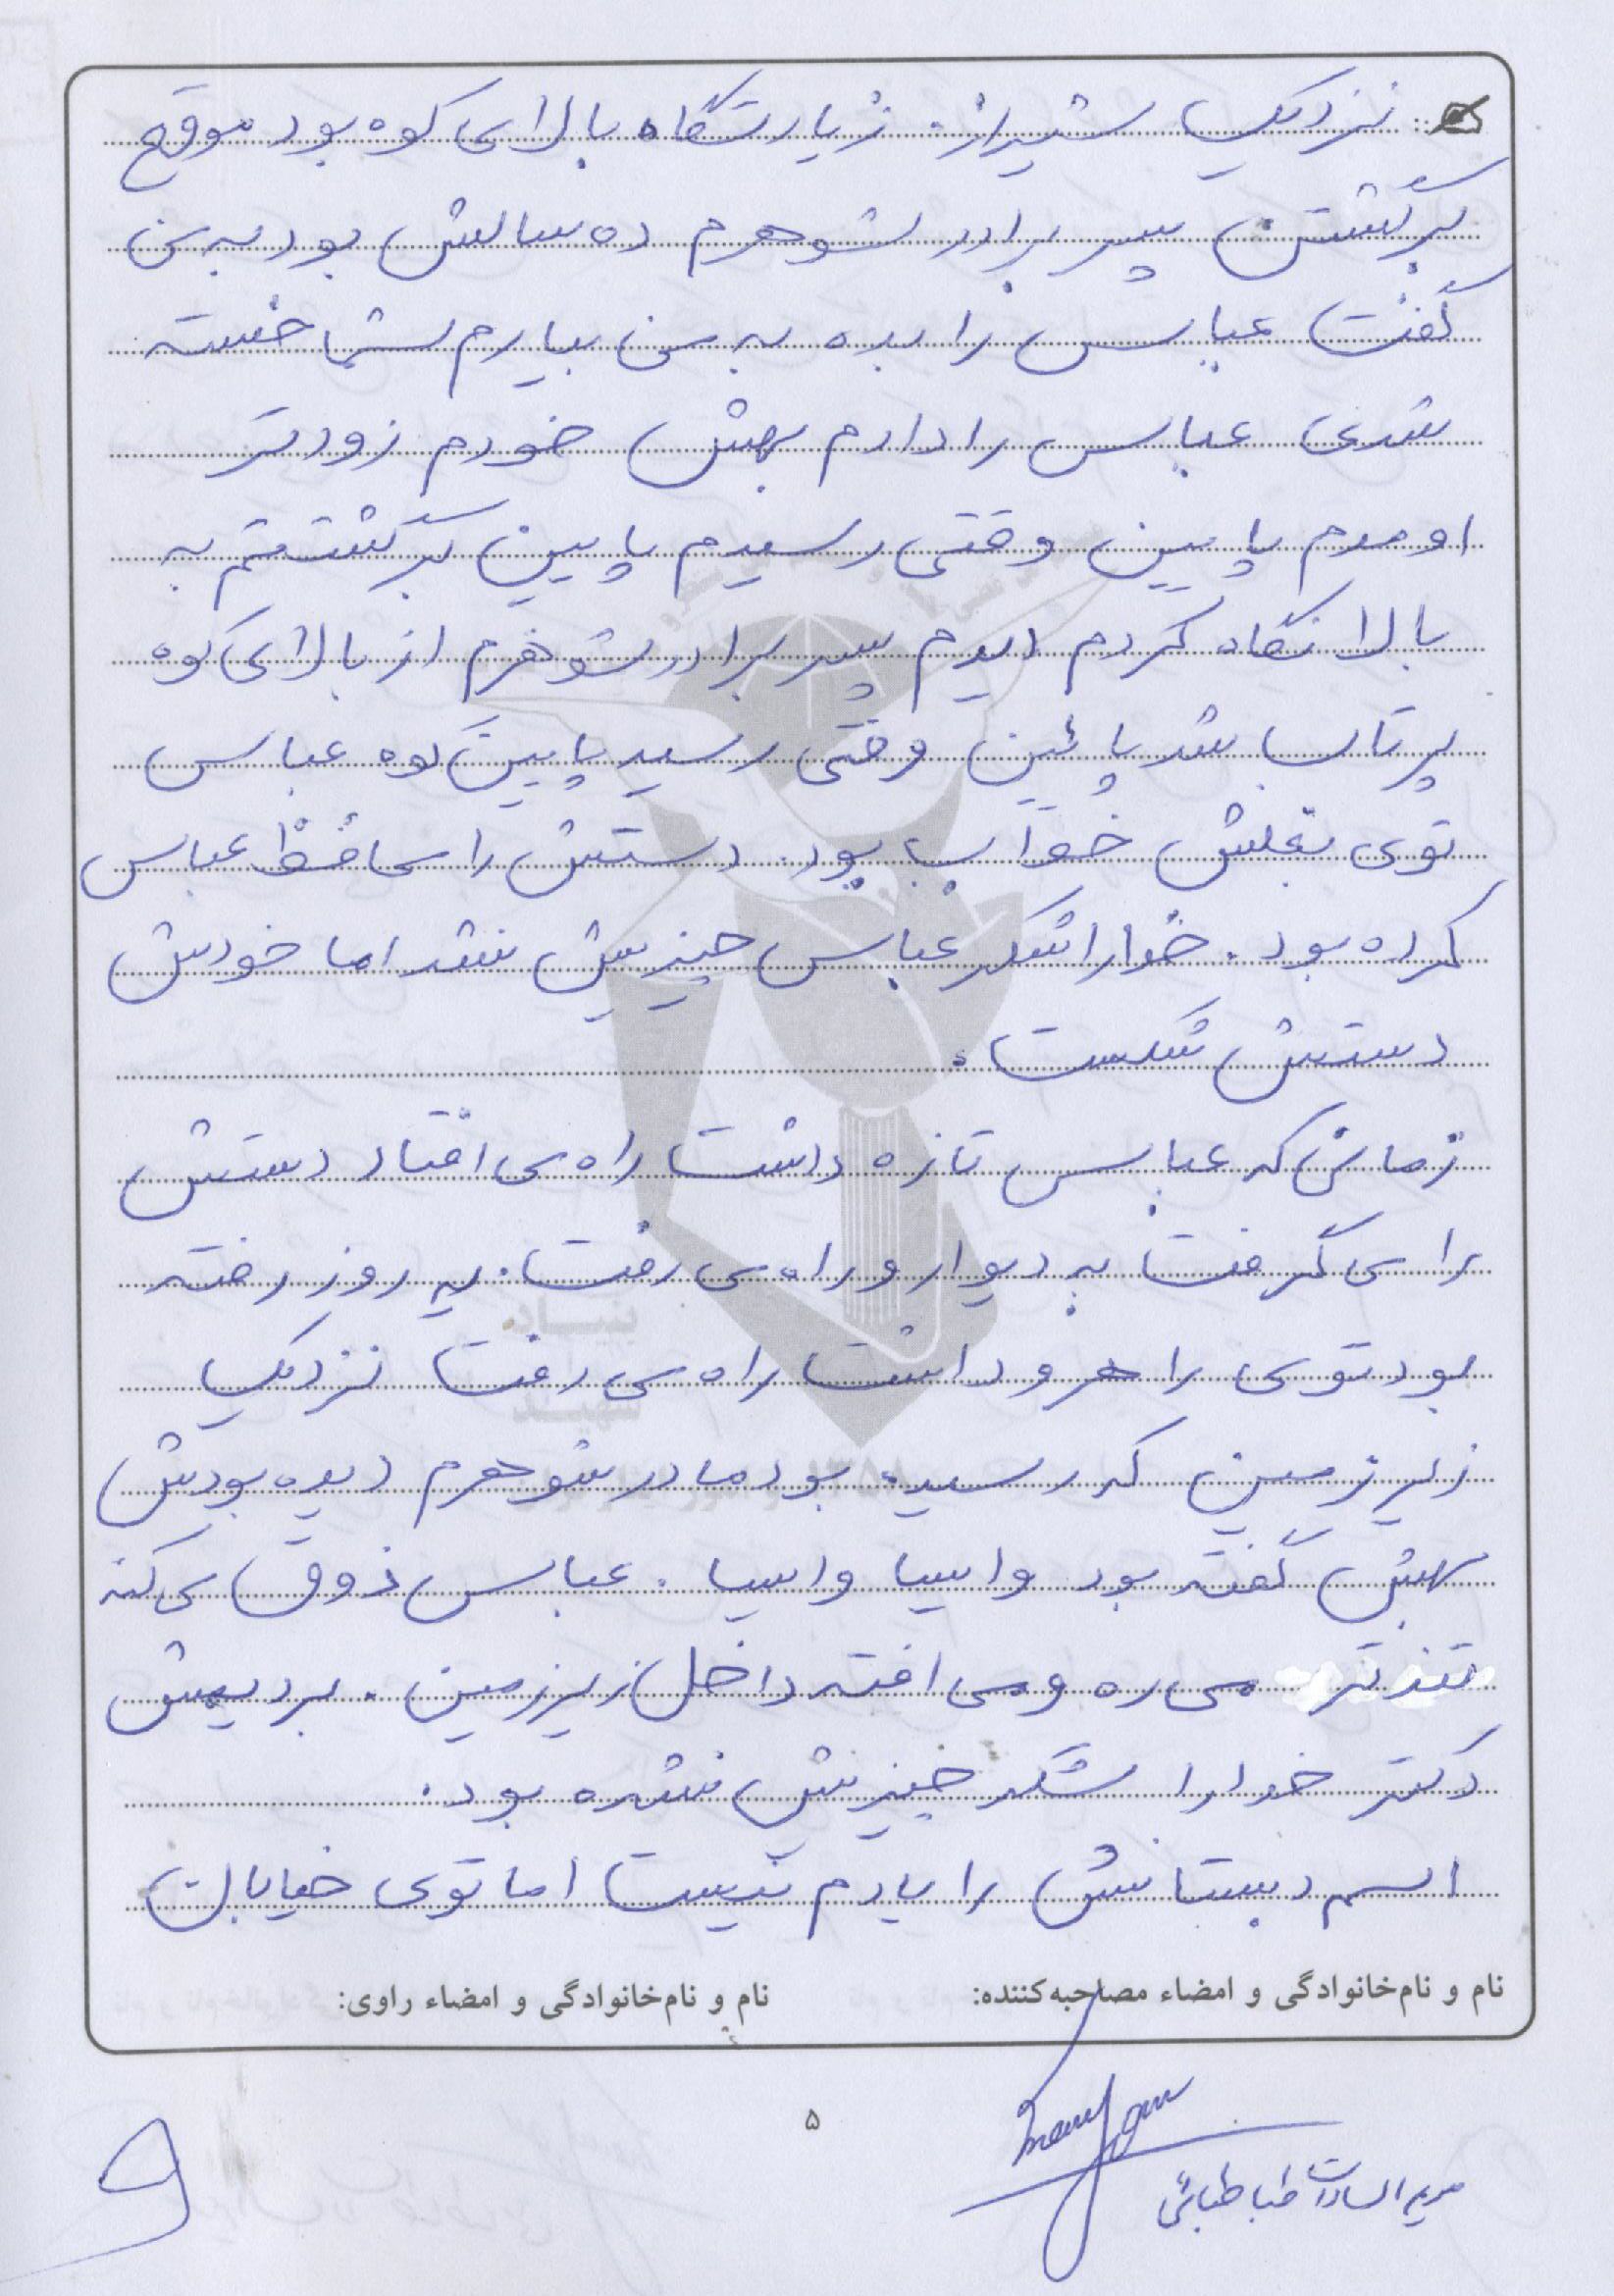 نزدیک شیراز. زیارتگاه بالای کوه بود موقع
برگشتن پسر برادر شوهرم ده سالش بود به من
گفت عباس را بده به من بیارم شما خسته
شدی عباس را دادم بهش خودم زودتر
اومدم پایین وقتی رسیدم پایین برگشتم به
بالا نگاه کردم دیدم پسر برادر شوهرم از بالای کوه
پرتاب شد پائین وقتی رسید پایین کوه عباس
توی بغلش خواب بود. دستش را محافظ عباس
کرده بود. خدارا شکر عباس چیزیش نشد اما خودش
دستش شکست.
زمانی که عباس تازه داشت راه می افتاد دستش
را می گرفت به دیوار و راه می رفت. یه روز رفته
بود توی راهرو داشت راه می رفت نزدیک
زیرزمین که رسیده بود مادر شوهرم دیده بودش
بهش گفته بود واسیا واسیا. عباس ذوق می کنه
تندتر می ره و می افته داخل زیرزمین. بردیمش
دکتر خدا را شکر چیزیش نشده بود.
اسم دبستانش را یادم نیست اما توی خیابان
نام و نام‌خانوادگی و امضاء مصاحبه‌کننده:
نام و نام‌خانوادگی و امضاء راوی:
۵
maryam
مریم السادات طباطبائی
بنیاد
شهید